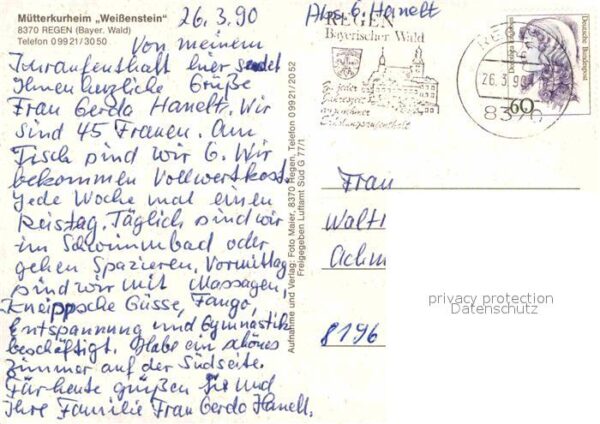 Mütterkurheim „Weißenstein"
8370 REGEN (Bayer. Wald)
Telefon 0 99 21 / 30 50
26.3.90
Von meinem
Kuraufenthalt hier sendet
Ihnen herzliche Grüße
Frau Gerda Hanelt. Wir
sind 45 Frauen. Am
Tisch sind wir 6. Wir
bekommen Vollwertkost.
Jede Woche mal einen
Reistag. Täglich sind wir
im Schwimmbad oder
gehen Spazieren. Vormittag
sind wir mit Massagen,
Kneippsche Güsse, Fango,
Entspannung und Gymnastik
beschäftigt. Habe ein schönes
Zimmer auf der Südseite.
Für heute grüßen Sie und
Ihre Familie Frau Gerda Hanelt.
Aufnahme und Verlag: Foto Maier, 8370 Regen, Telefon 0 99 21/20 52
Freigegeben Luftamt Süd G 77/1
Abs. G. Hanelt
REGEN
Bayerischer Wald
Zu jeder
Jahreszeit
angenehmer
Erholungsaufenthalt
REGEN
26.3.90
8370
Deutsche Bundespost
60
Frau
Walt
Achm
8196
privacy protection
Datenschutz